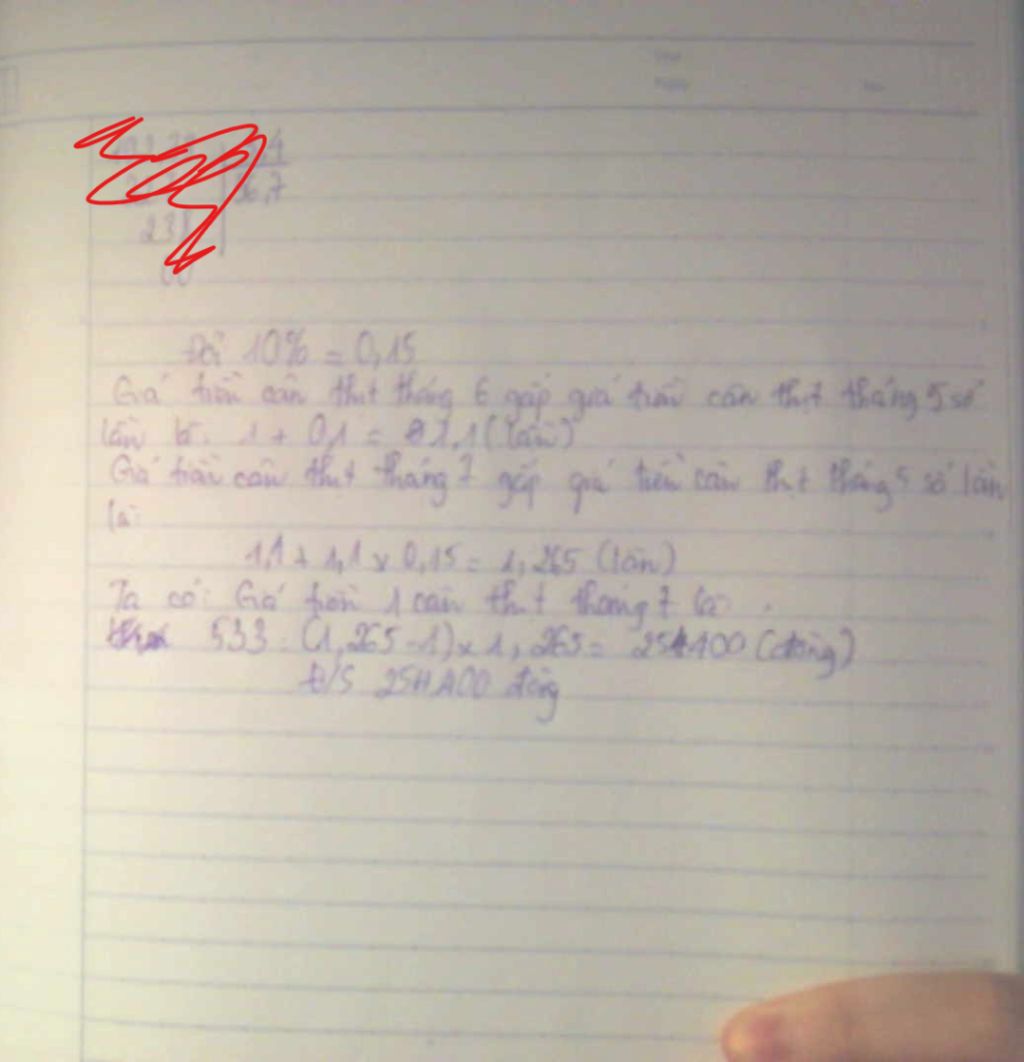 10% = 0,15
Giá tiền cân thịt tháng 6 gấp giá tiền cân thịt tháng 5 số
lần là: 1 + 0,1 = 1,1 (lần)
Giá tiền cân thịt tháng 7 gấp giá tiền cân thịt tháng 5 số lần
là:
1,1 + 1,1 x 0,15 = 1,265 (lần)
Ta có: Giá tiền 1 cân thịt tháng 7 là:
533 : (1,265 - 1) x 1,265 = (đồng)
Đ/S đồng